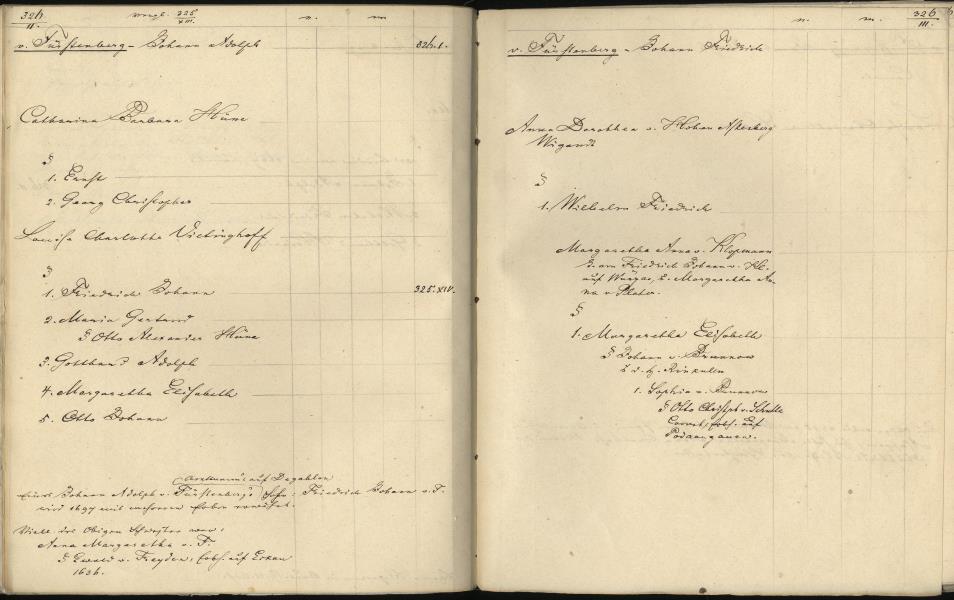 326.
II.
Vergl. 325
XIII.
n.
m
v. Fürstenberg - Johann Adolph
326.I.
Catharina Barbara Hüne
§
1. Ernst
2. Georg Christopher
Louisa Charlotte Vietinghoff
§
1. Friedrich Johann
325.XIV.
2. Maria Gertrud
§ Otto Alexander Hüne
3. Gotthard Adolph
4. Margaretha Elisabeth
5. Otto Johann
auf Degahlen
Johann Adolph v. Fürstenberg's Sohn: Friedrich Johann v. F.
wird 1697 mit mehreren
Vielt. des Obigen Schwester war:
Anna Margaretha v. F.
§ Ewald v. Freyden, Erbh. auf
1636.
n.
m.
326
III.
v. Fürstenberg - Johann Friedrich
Anna Dorothea v. Hohen Astenberg
Wigandt
§
1. Wilhelm Friedrich
Margaretha Anna v. Klopmann
T. von Friedrich Johann v. Kl.
auf Würzau, u. Margaretha An-
na v. Plater.
§
1. Margaretha Elisabeth
§ Johann v. Brunnow
1. Sophia v. Brunnow
§ Otto Christoph v. Schulte
Cornet, Erbh. auf